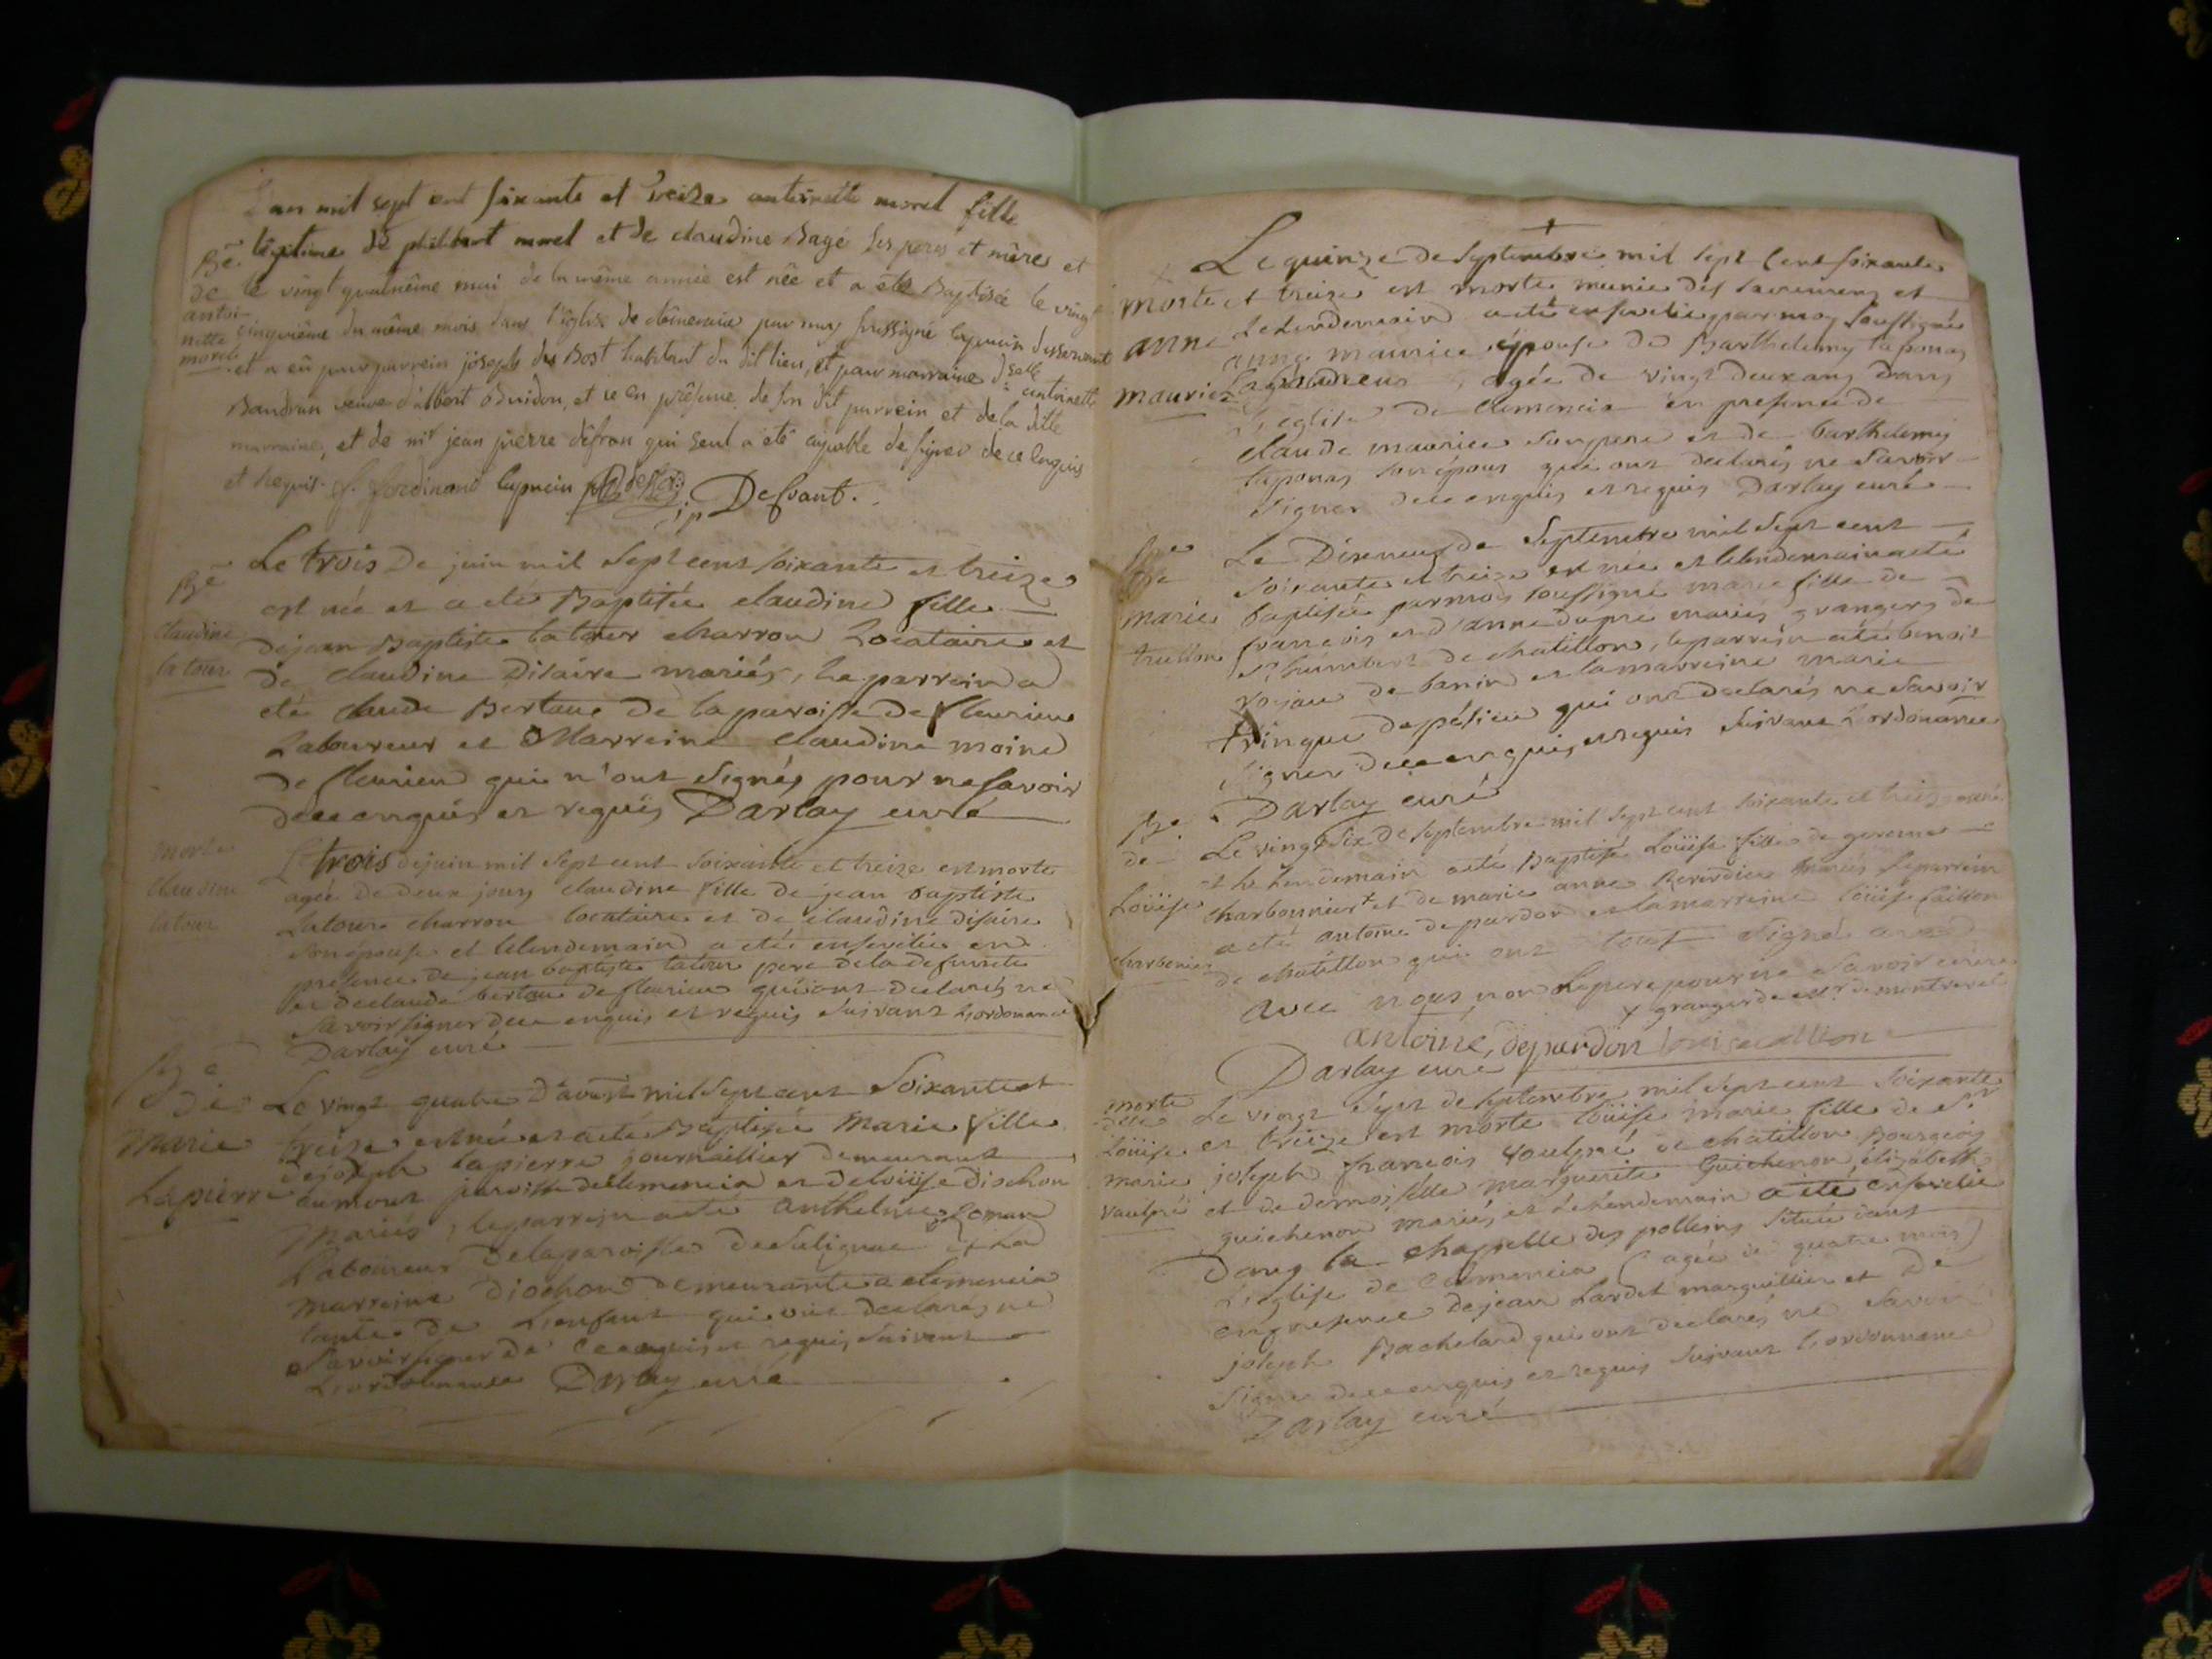 L'an mil sept cent soixante et treize antoinette morel fille
légitime de philibert morel et de claudine Bagé ses peres et mères et
le vingt quatrième mai de la même année est née et a été Baptisée le vingt
cinquième du même mois dans l'église de clémencia par moy soussigné capucin desservant
et a eû pour parrein joseph du Bost habitant du dit lieu, et pour marraine dselle antoinette
Baudran veuve d'albert et ce en présence de son dit parrein et de la ditte
marraine, et de mr jean pierre défran qui seul a été capable de signer de ce enquis
et requis. f. ferdinand capucin
j p Defrant.
Bê
de
antoi-
nette
morel
Le trois De juin mil sept cent soixante et treize
est née et a été Baptisée claudine fille
de jean Baptiste latour charron Locataire et
de claudine Dilaire mariés, Le parrein a
été claude Bertaud de la paroisse de fleurieu
Laboureur et Marreine claudine moine
de fleurieu qui n'ont signés pour ne savoir
de ce enquis et requis Darlay curé
Bê
claudine
latour
Le trois de juin mil sept cent soixante et treize est morte
agée de deux jours claudine fille de jean baptiste
Latour charron locataire et de claudine dilaire
son épouse et le lendemain a été ensevelie en
présence de jean baptiste latour pere de la defunte
et de claude bertaud de fleurieu qui ont declarés ne
savoir signer de ce enquis et requis suivant L'ordonnance
Darlay curé
morte
claudine
latour
Le vingt quatre D'avust mil sept cent soixante et
treize est née et a été Baptisée Marie fille
de joseph lapierre journaillier demeurant
au mont paroisse de clemencia et de loüise diochon
Mariés, le parrein a été anthelme Loman
Laboureur de la paroisse de sulignac et La
marreine diochon demeurante a clemencia
tante de L'enfant qui ont declarés ne
savoir signer de ce enquis et requis suivant
L'ordonnance Darlay curé
Bê
de
Marie
Lapierre
Le quinze de septembre mil sept cent soixante
et treize est morte munie des sacremens et
Le Lendemain a été ensevelie par moy soussigné
anne maurice épouse de Barthelemy taponas
agée de vingt deux ans dans
L'eglise de clemencia en presence de
claude maurice son pere et de barthelemy
taponas son époux qui ont declarés ne savoir
signer de ce enquis et requis Darlay curé
morte
anne
maurice
Le Dixneuf de septembre mil sept cent
soixante et treize est née et le lendemain a été
baptisée par moy soussigné marie fille de
francois et d'anne dupré mariés grangers de
st humbert de chatillon, le parrein a été benoit
de banin et la marreine marie
tringue de pésieu qui ont declarés ne savoir
signer de ce enquis et requis suivant L'ordonnance
Darlay curé
Bê
marie
trullon
Le vingt six de septembre mil sept cent soixante et treize est née
et le lendemain a été Baptisé Loüise fille de gerome
charbonnier + et de marie anne mariés le parrein
a été antoine depardon et la marreine loüise
de chatillon qui ont tous signé
avec nous non Le pere pour ne savoir ecrire
+ granger de mr de montrevel
antoine, depardon
Darlay curé
Bê
de
Loüise
charbonier
Le vingt sept de septembre mil sept cent soixante
et treize est morte loüise marie fille de Sr
joseph francois vaulpré de chatillon Bourgeois
et de demoiselle marguerite Guichenon élizabeth
guichenon mariés et le lendemain a été ensevelie
dans la chappelle des polleins située dans
L'eglise de clemencia (agée de quatre mois)
en presence de jean Lardet marguillier et de
joseph Bachelard qui ont declarés ne savoir
signer de ce enquis et requis suivant L'ordonnance
Darlay curé
morte
Loüise
marie
vaulpré